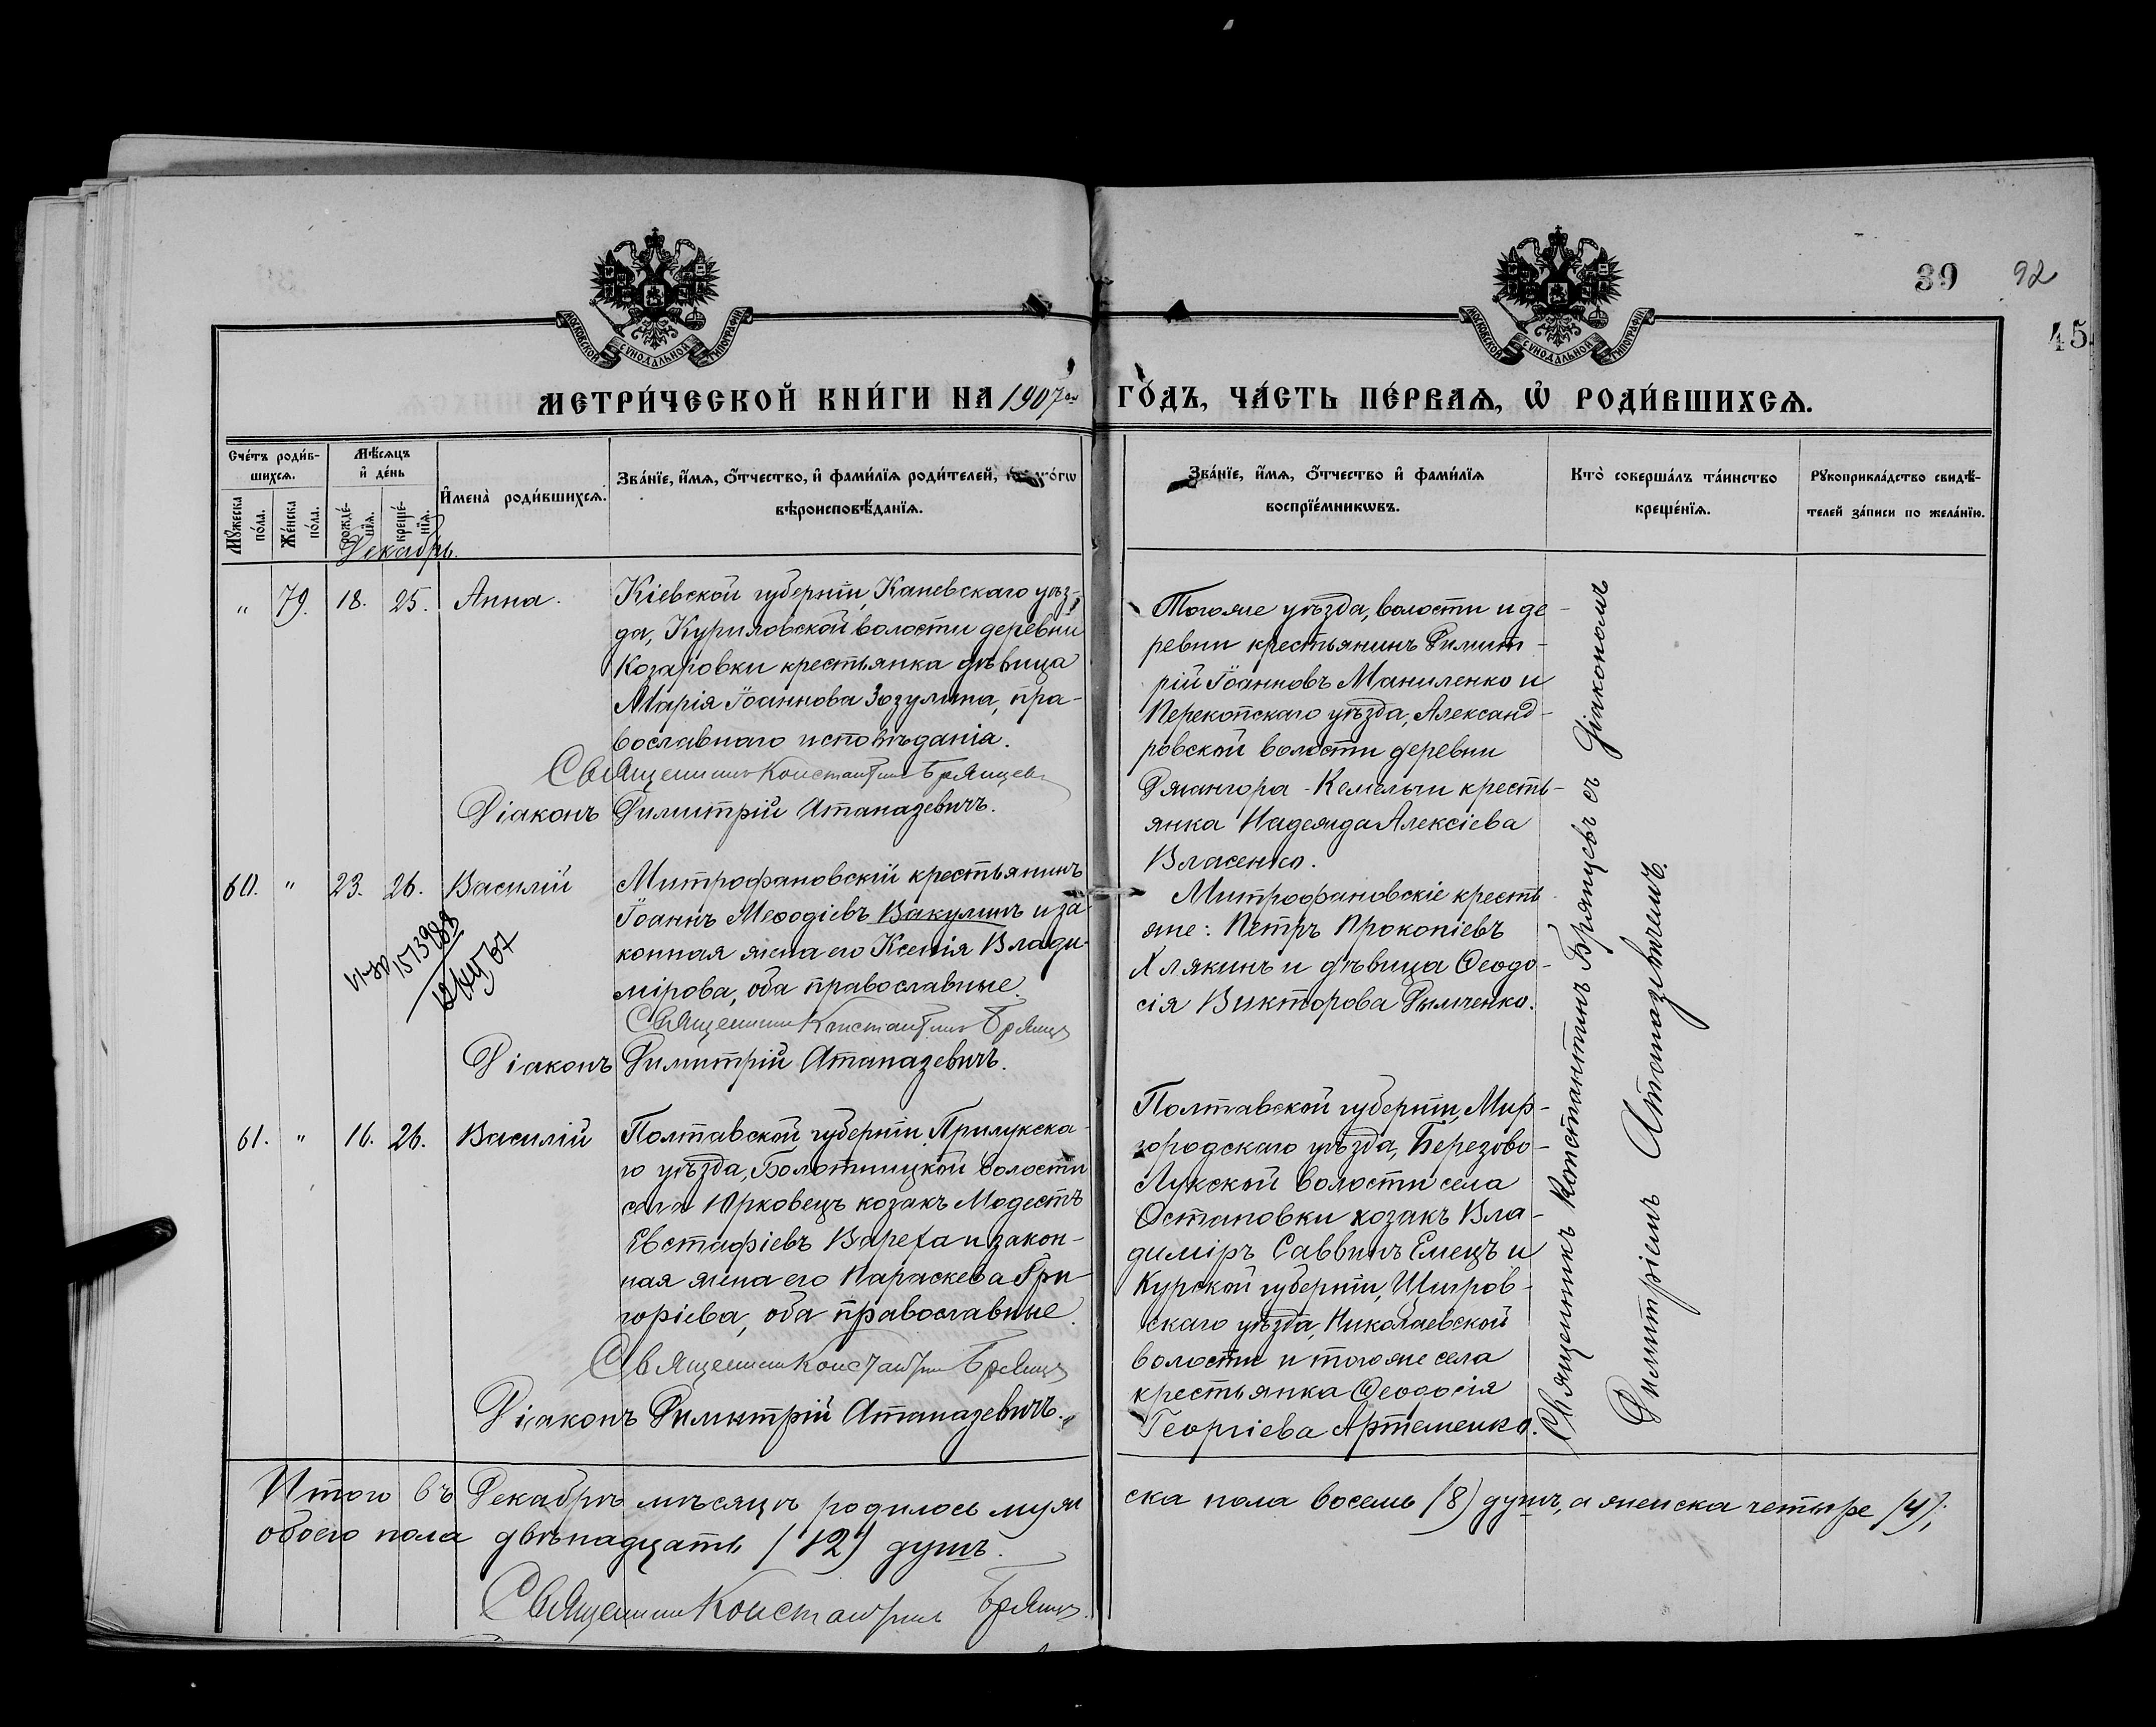 39 92
45
МОСКОВСКОЙ СѴНОДАЛЬНОЙ ТИПОГРАФІИ
МОСКОВСКОЙ СѴНОДАЛЬНОЙ ТИПОГРАФІИ
МЕТРИ́ЧЕСКОЙ КНИ́ГИ НА 1907 ГО́ДЪ, ЧА́СТЬ ПЕ́РВАѦ, Ѡ҆ РОДИ́ВШИХСѦ.
Сче́тъ роди́в-
шихсѧ.
Мꙋ́жеска
по́ла.
Же́нска
по́ла.
Мѣ́сѧцъ
и҆ де́нь
рожде́-
нїѧ.
креще́-
нїѧ.
И҆мена̀ роди́вшихсѧ.
Зва́нїе, и҆́мѧ, ѻ҆́тчество, и҆ фами́лїѧ роди́телей,
вѣроисповѣ́данїѧ.
Зва́нїе, и҆́мѧ, ѻ҆́тчество и҆ фами́лїѧ
воспрїе́мникѡвъ.
Кто̀ соверша́лъ та́инство
креще́нїѧ.
Рꙋкоприкла́дство свидѣ́-
телей за́писи по жела́нїю.
Декабрь
" 79. 18. 25. Анна.
Кіевской губерніи, Каневскаго уѣз-
да, Куриловской волости деревни
Козаровки крестьянка дѣвица
Марія Іоаннова Зозулина, пра-
вославнаго исповѣданія.
Священникъ Константинъ Брянцевъ
Діаконъ Димитрій Атаназевичъ.
Тогоже уѣзда, волости и де-
ревни крестьянинъ Димит-
рій Іоанновъ Маниленко и
Перекопскаго уѣзда, Александ-
ровской волости деревни
Джангора-Кемельчи кресть-
янка Надежда Алексіева
Власенко.
60. " 23. 26. Василій
Митрофановскій крестьянинъ
Іоаннъ Меѳодіевъ Вакулинъ и за-
конная жена его Ксенія Влади-
мірова, оба православные.
Священникъ Константинъ Брянцевъ
Діаконъ Димитрій Атаназевичъ.
Митрофановскіе кресть-
яне: Петръ Прокопіевъ
Хлякинъ и дѣвица Ѳеодо-
сія Викторова Дымченко.
61. " 16. 26. Василій
Полтавской губерніи, Прилукска-
го уѣзда, Болотницкой волости
села Юрковецъ козакъ Модестъ
Евстафіевъ Вареха и закон-
ная жена его Параскева Гри-
горіева, оба православные.
Священникъ Константинъ Брянцевъ
Діаконъ Димитрій Атаназевичъ.
Полтавской губерніи, Мир-
городскаго уѣзда, Березово-
Лукской волости села
Остаповки козакъ Вла-
диміръ Саввинъ Емецъ и
Курской губерніи, Щигров-
скаго уѣзда, Николаевской
волости и тогоже села
крестьянка Ѳеодосія
Георгіева Артеменко.
Священникъ Константинъ Брянцевъ съ Діакономъ
Димитріемъ Атаназевичемъ.
Итого въ Декабрѣ мѣсяцѣ родилось муже ска пола восемь (8) душъ, а женска четыре (4);
обоего пола двѣнадцать (12) душъ.
Священникъ Константинъ Брянцевъ